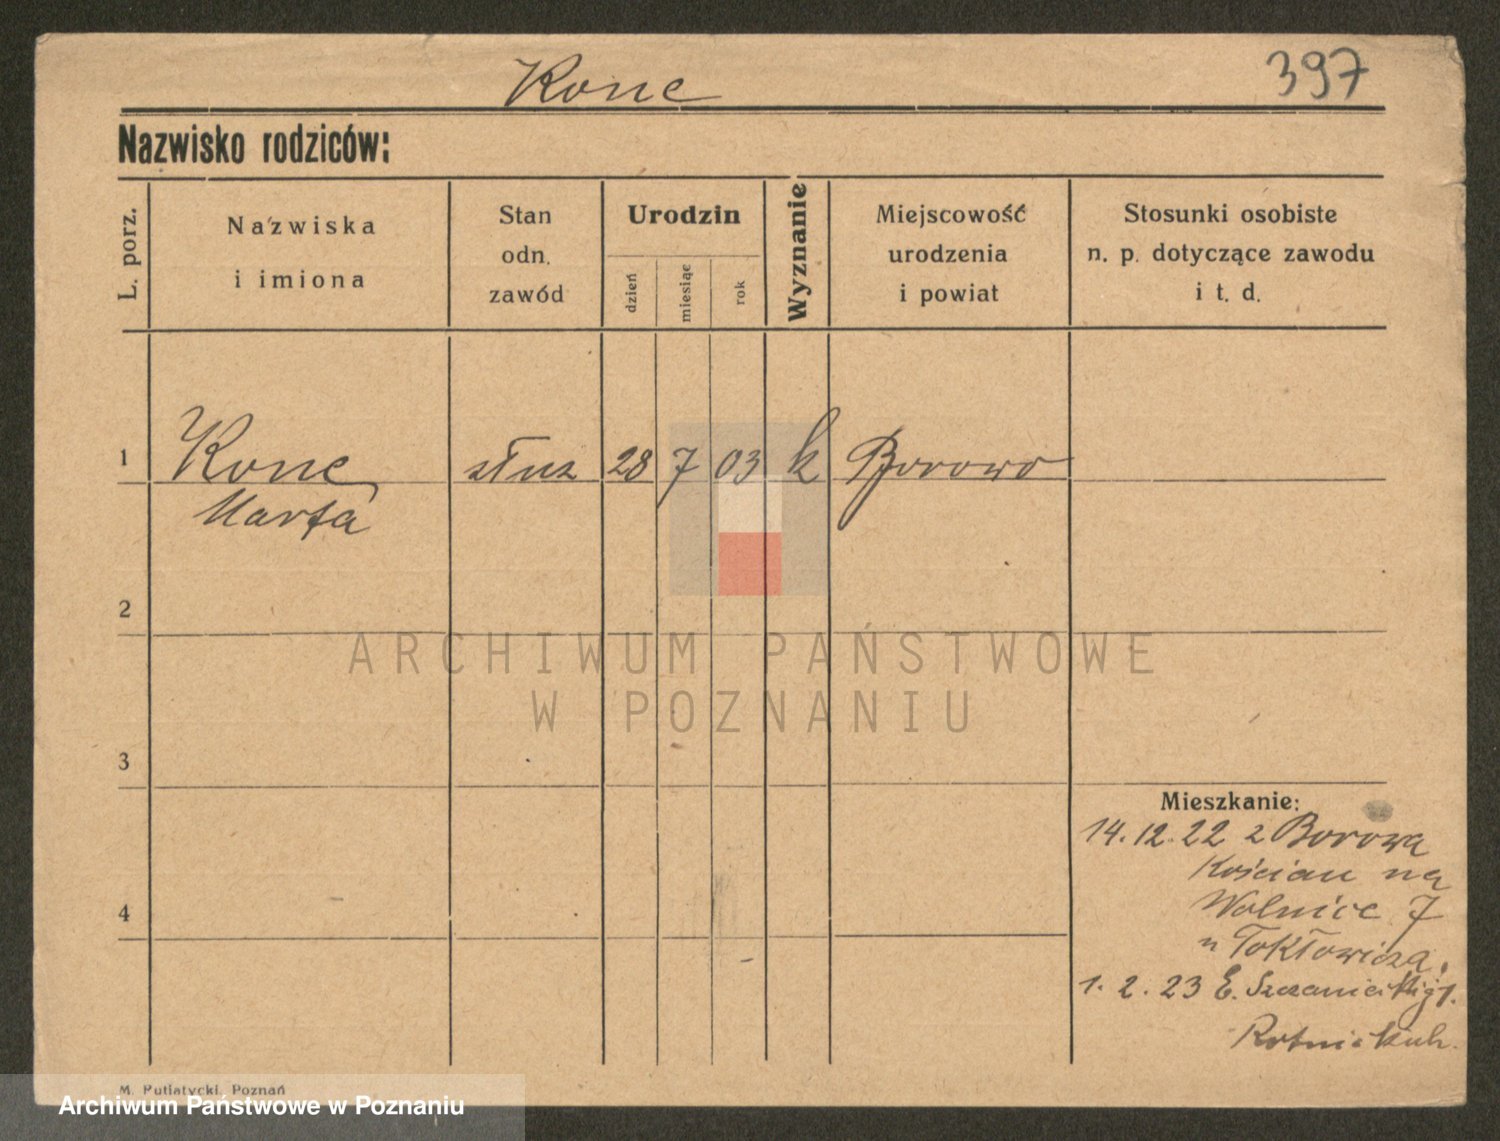 Konc
397
Nazwisko rodziców:
L. porz.
Nazwiska
i imiona
Stan
odn.
zawód
Urodzin
dzień
miesiąc
rok
Wyznanie
Miejscowość
urodzenia
i powiat
Stosunki osobiste
n. p. dotyczące zawodu
i t. d.
1 Konc służ 28 7 03 k Borowo
Marta
2
3
4
Mieszkanie:
14.12.22 z Borowa
Kościan na
Wolnice 7
u
1.2.23 E. 1.
M. Putiatycki, Poznań
ARCHIWUM PAŃSTWOWE
W POZNANIU
Archiwum Państwowe w Poznaniu